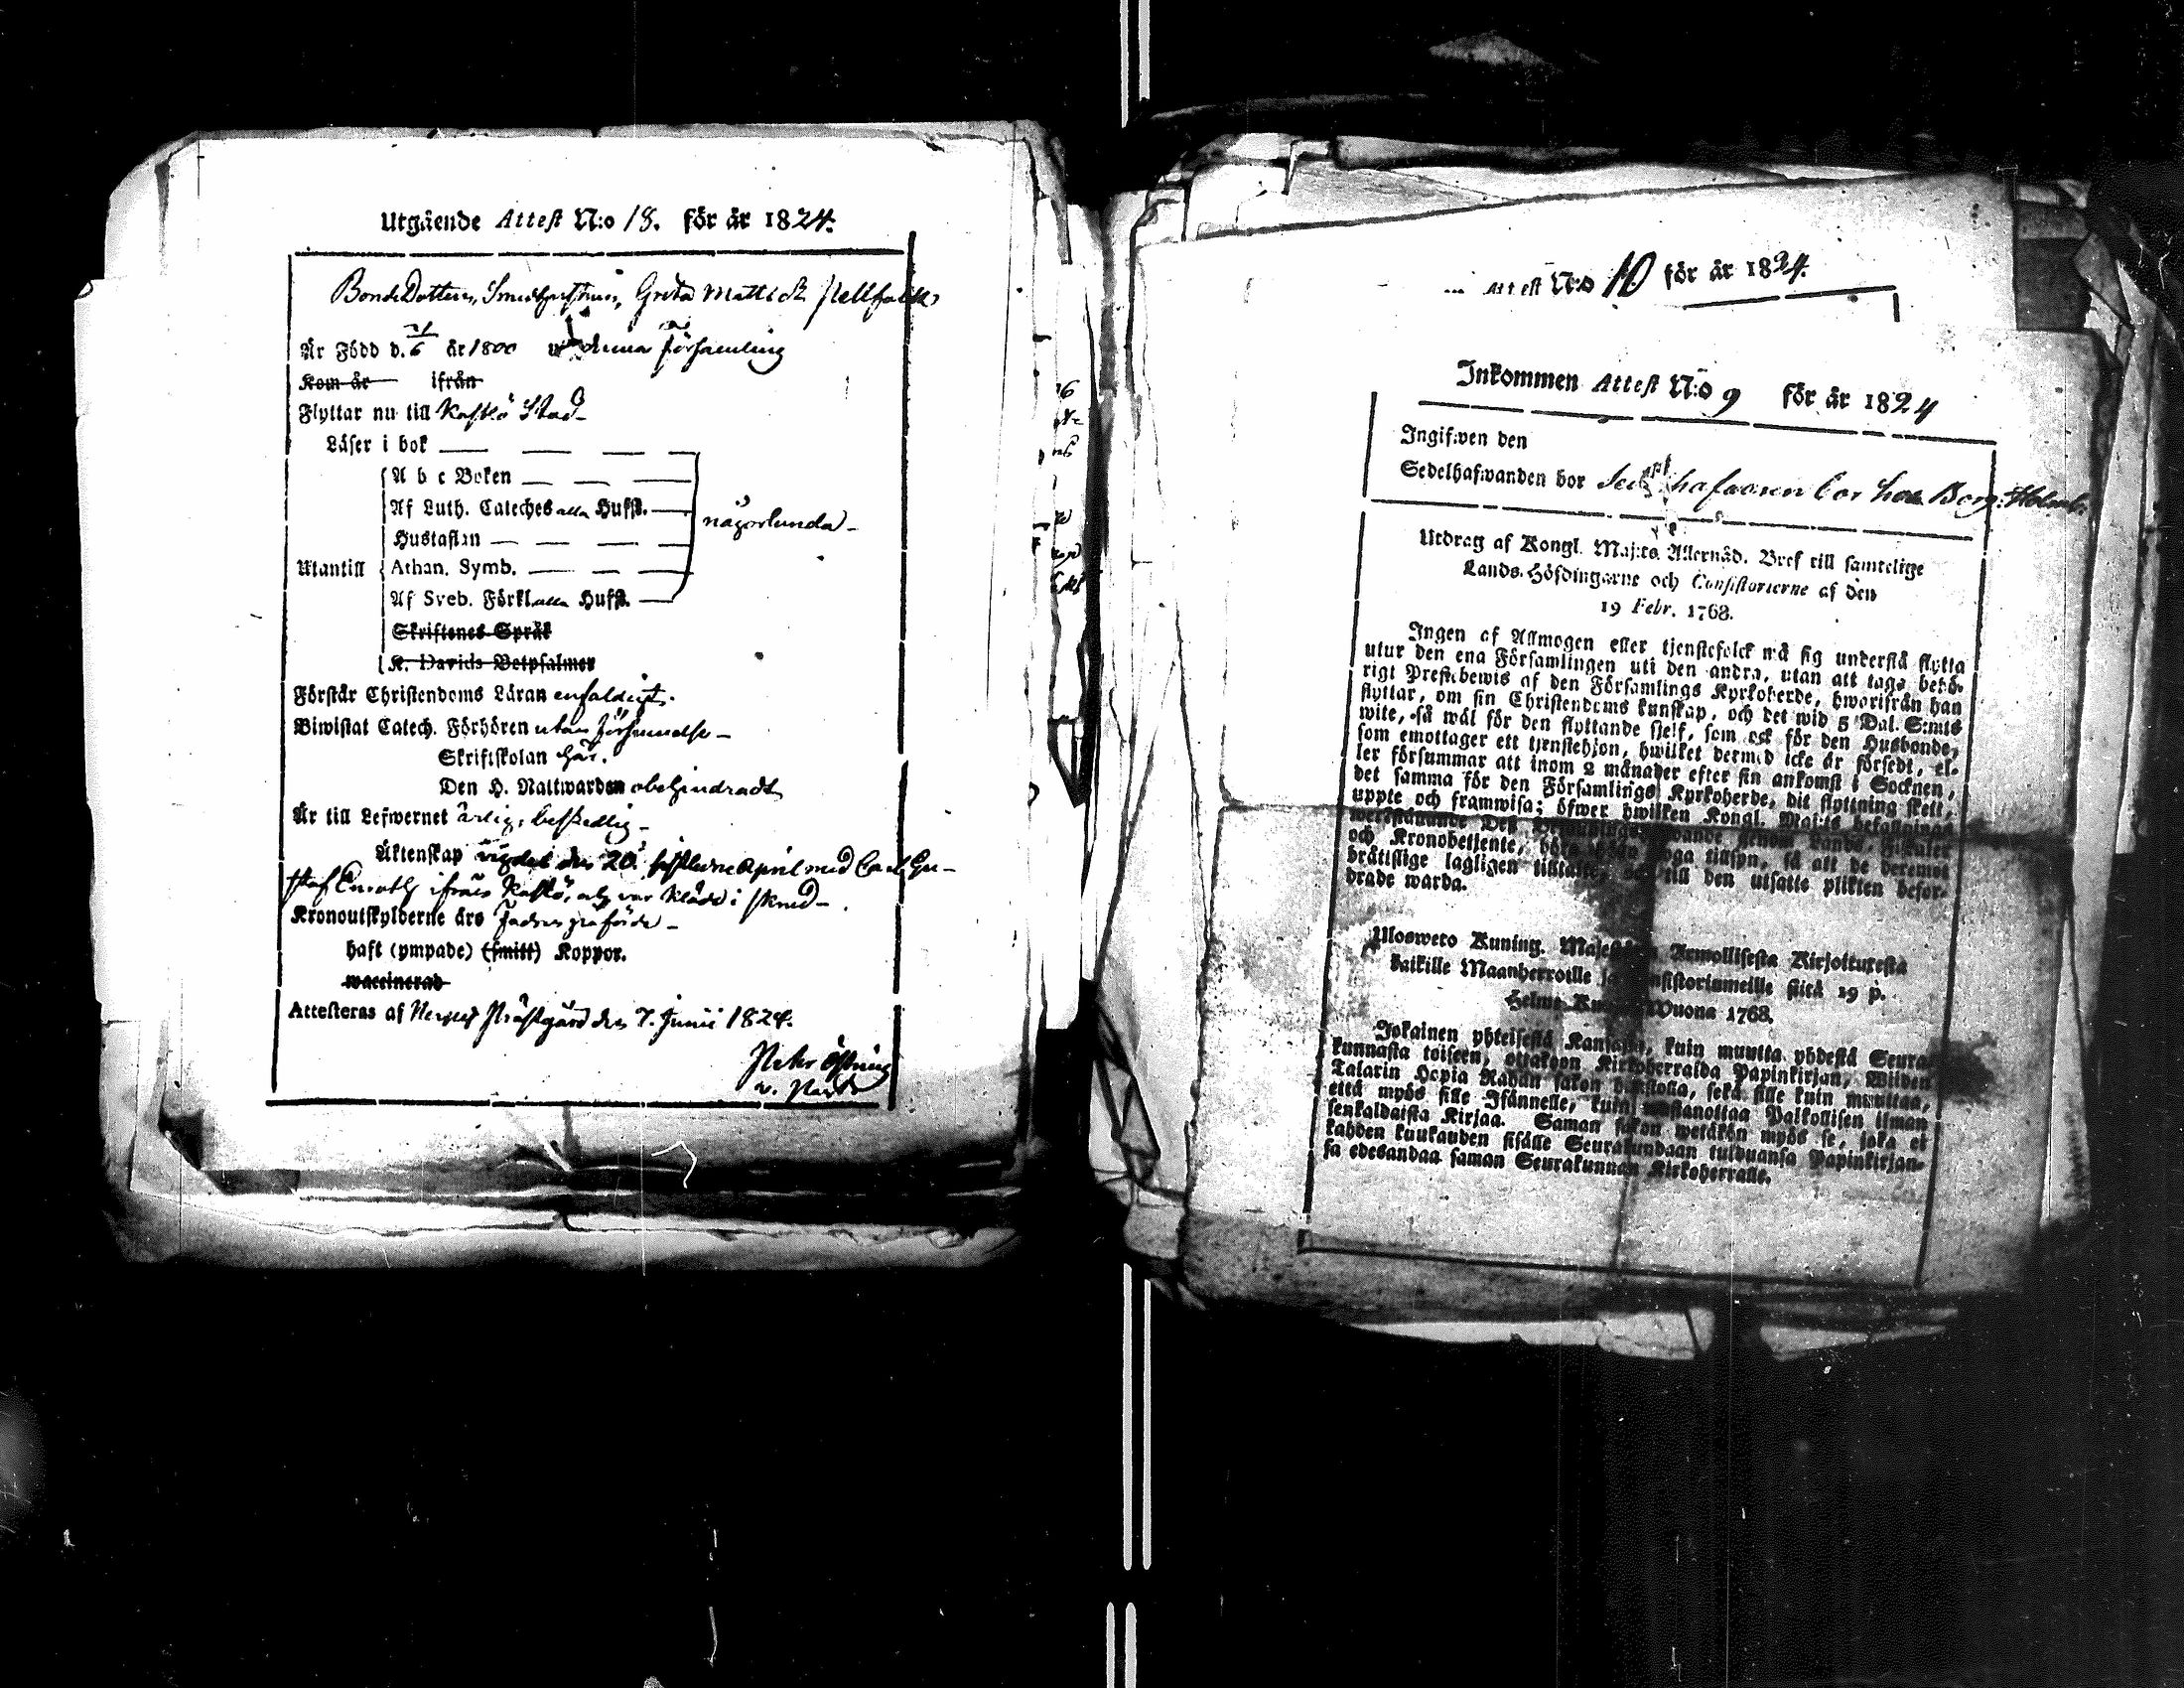 Utgående Attest N:o 18. för år 1824.
BondeDottern, Smedhustrun, Greta Mattsdr
Är Född d. 6 år 1800 denna Församling
Kom år ifrån
Flyttar nu till Kaskö Stad
Läser i bok
A b c Boken
Af Luth. Cateches alla Hufst.
någorlunda
Hustaflan
Utantill Athan. Symb.
Af Sveb. Förkl. alla Hufst.
Skriftenes Språk
K. Davids Botpsalmer
Förstår Christendoms Läran enfaldigt.
Biwistat Catech. Förhören utan försummelse
Skriftskolan här.
Den H. Nattwarden obehindradt
Är till Lefwernet ärlig, beskedlig
Äktenskap vigdes den 20. sistledne April med Carl Gu-
staf ifrån Kaskö,
Kronoutskylderne äro
haft (ympade) (smitt) Koppor.
vaccinerad
Attesteras af Prästgård den 7. Junii 1824.
Attest N:o 10 för år 1824.
Inkommen Attest N:o 9 för år 1824
Ingifwen den
Sedelhafwanden bor
Utdrag af Kongl. Maj:ts Allernåd. Bref till samtelige
Lands-Höfdingarne och Consistorierne af den
19 Febr. 1768.
Ingen af Allmogen eller tjenstefolck må sig understå flytta
utur den ena Församlingen uti den andra, utan att taga behö-
rigt Prestebewis af den Församlings Kyrkoherde, hworifrån han
flyttar, om sin Christendoms kunskap, och det wid 5 Dal. S:mts
wite, så wäl för den flyttande sjelf, som ock för den Husbonde,
som emottager ett tjenstehjon, hwilket dermed icke är försedt, el-
ler försummar att inom 2 månader efter sin ankomst i Socknen,
det samma för den Församlings Kyrkoherde, dit flyttning skett,
uppte och framwisa; öfwer hwilken Kongl. Maj:ts befallnings
werkställande genom Lands-Fiskaler
och Kronobetjente, noga tillsyn, så att de deremot
brätslige lagligen tilltalte, och till den utsatte plikten befor-
drade warda.
Ulosweto Kuning. Majestetin Armollisesta Kirjoituresta
kaikille Maanherroille ja Consistoriumeille siitä 19 p.
Helme-Kuusa Wuona 1768.
Jokainen yhteisestä Kansasta, kuin muutta yhdestä Seura-
kunnasta toiseen, ottakoon Kirkoherralda Papinkirjan, Wiiden
Talarin Hopia Rahan sakon haastolla, sekä sille kuin muuttaa,
että myös sille Isännelle, kuin wastanottaa Palkollisen ilman
senkaldaista Kirjaa. Saman sakon wetäkön myös se, joka ei
kahden kuukauden sisälle Seurakundaan tulduansa Papinkirjan-
sa edesandaa saman Seurakunnan Kirkoherralle.